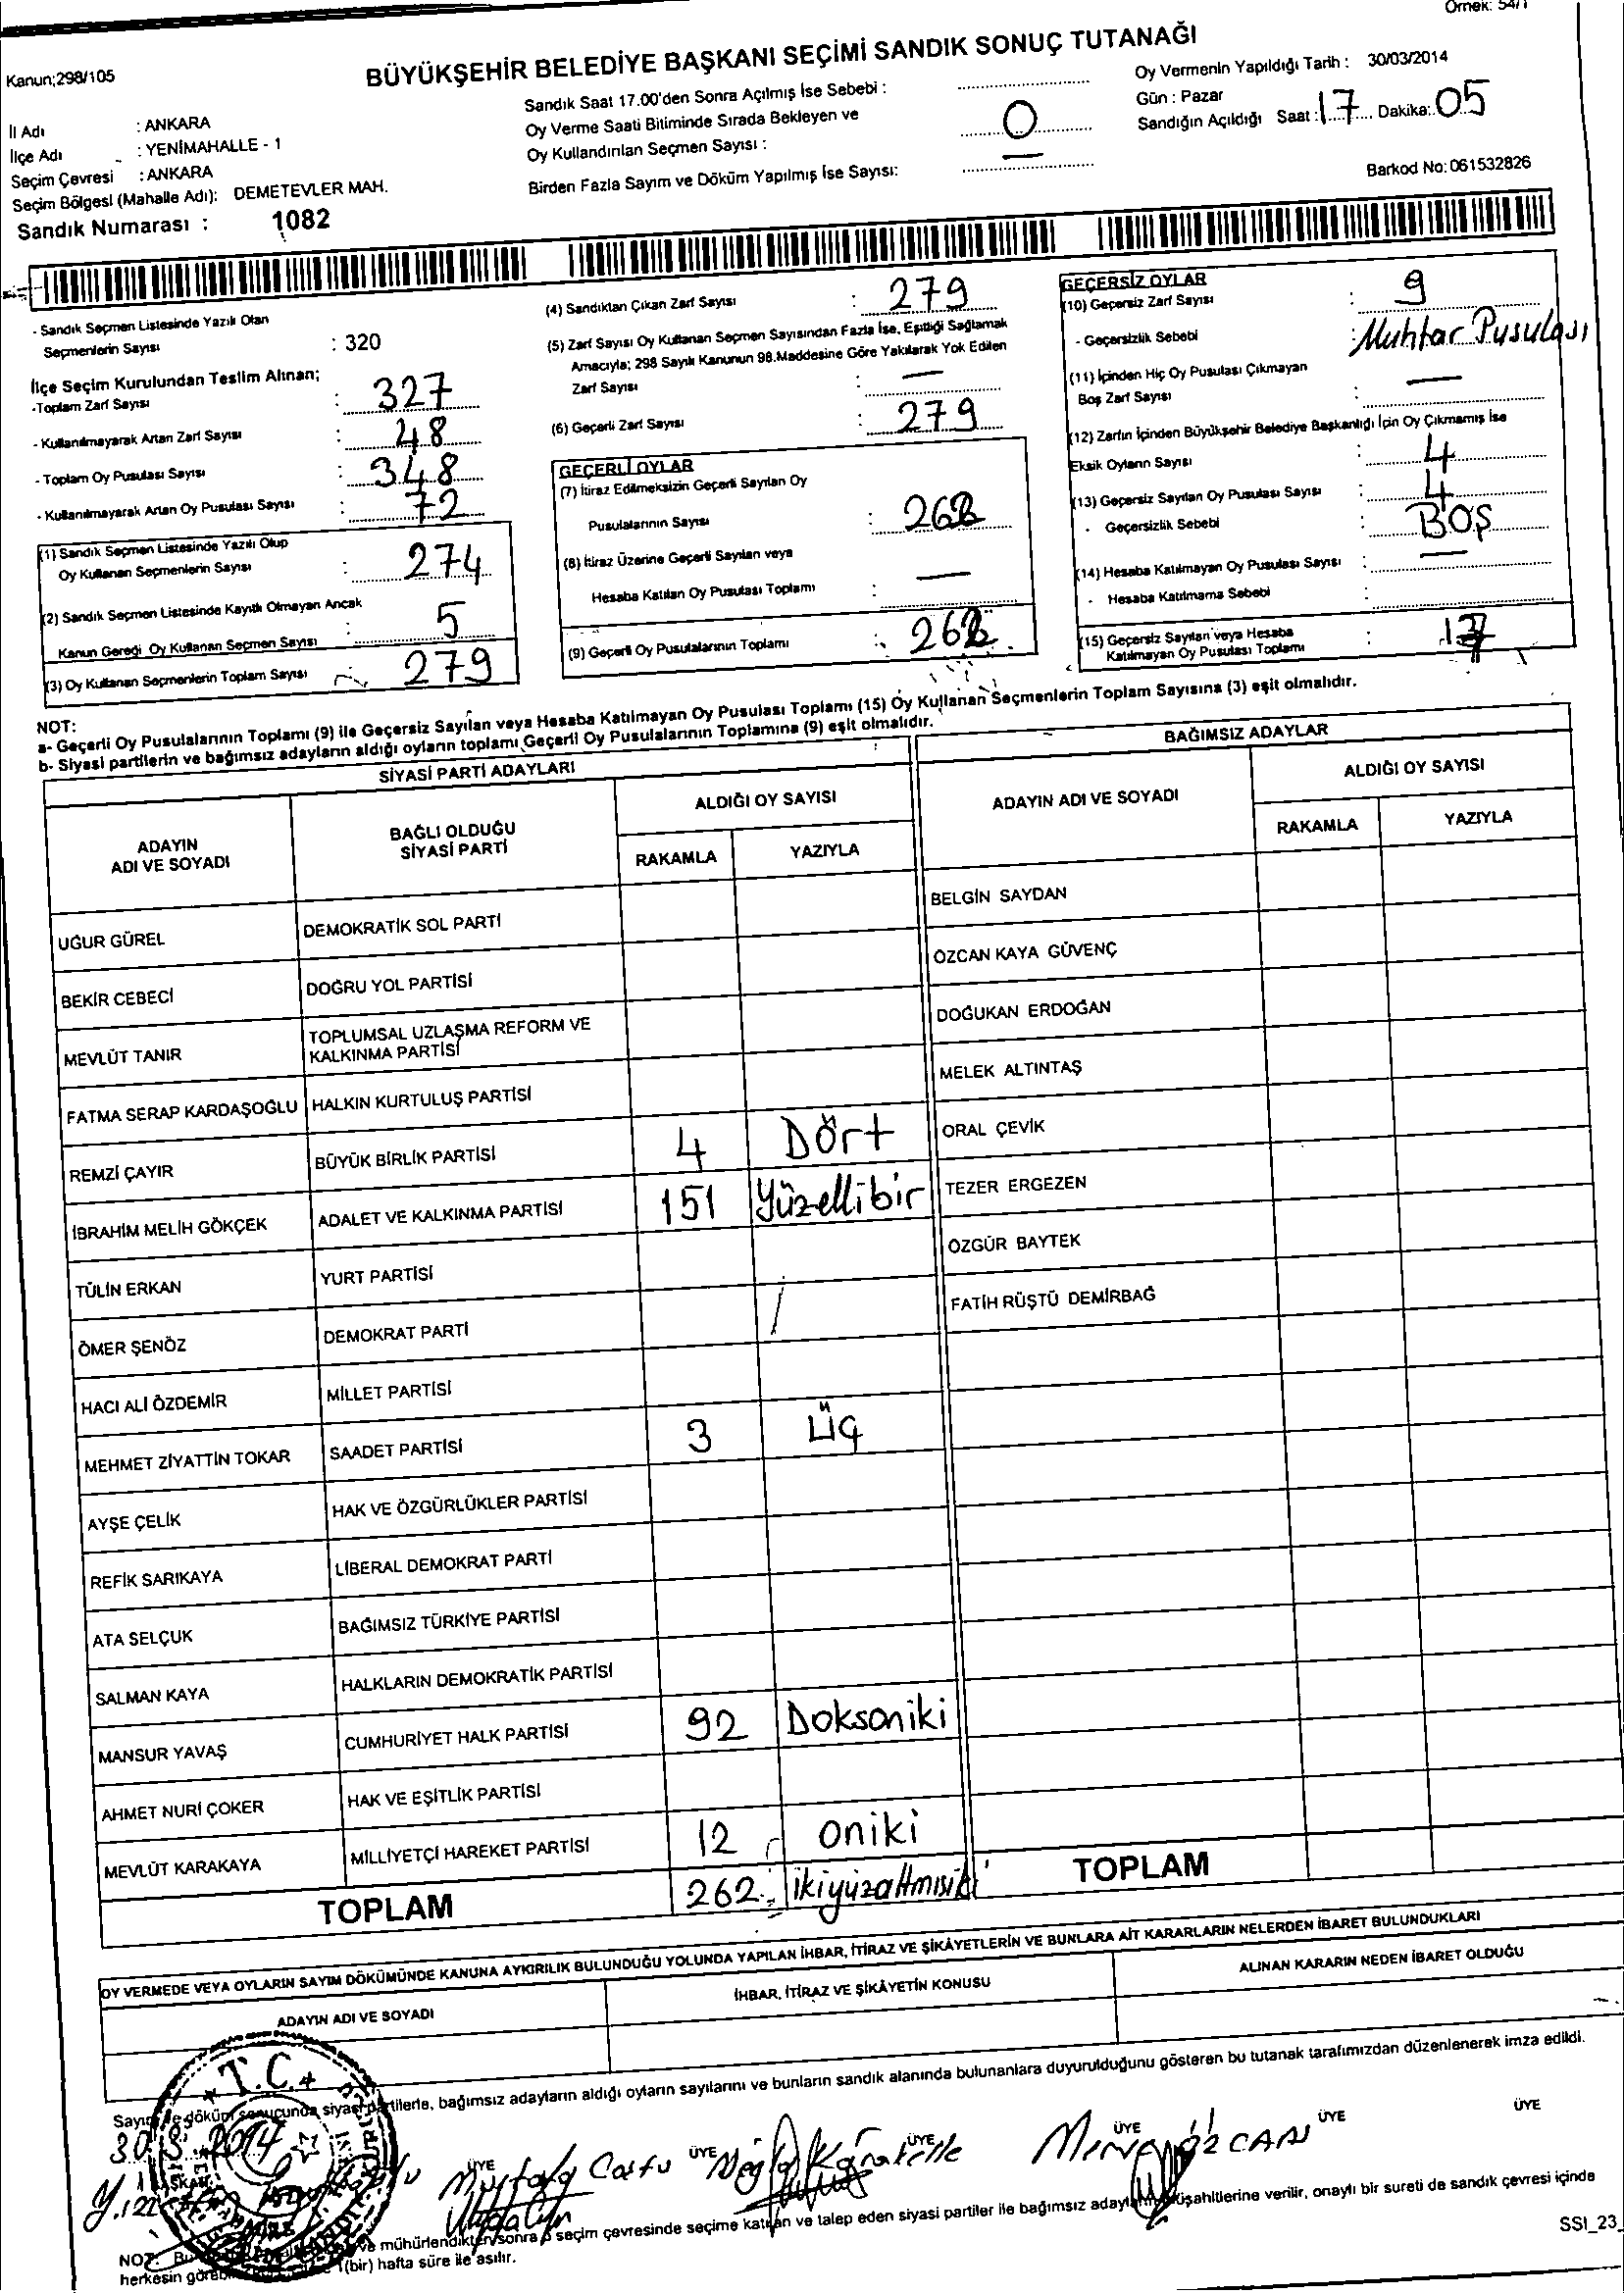 Örnek: 54/1
Kanun;298/105
BÜYÜKŞEHİR BELEDİYE BAŞKANI SEÇİMİ SANDIK SONUÇ TUTANAĞI
İl Adı : ANKARA
İlçe Adı : YENİMAHALLE - 1
Seçim Çevresi : ANKARA
Seçim Bölgesi (Mahalle Adı): DEMETEVLER MAH.
Sandık Numarası : 1082
Sandık Saat 17.00'den Sonra Açılmış İse Sebebi :
Oy Verme Saati Bitiminde Sırada Bekleyen ve
Oy Kullandırılan Seçmen Sayısı : 0
Birden Fazla Sayım ve Döküm Yapılmış İse Sayısı: —
Oy Vermenin Yapıldığı Tarih : 30/03/2014
Gün : Pazar
Sandığın Açıldığı Saat : 17 Dakika: 05
Barkod No: 061532826
- Sandık Seçmen Listesinde Yazılı Olan
Seçmenlerin Sayısı : 320
İlçe Seçim Kurulundan Teslim Alınan;
-Toplam Zarf Sayısı : 327
- Kullanılmayarak Artan Zarf Sayısı : 48
- Toplam Oy Pusulası Sayısı : 348
- Kullanılmayarak Artan Oy Pusulası Sayısı : 72
(1) Sandık Seçmen Listesinde Yazılı Olup
Oy Kullanan Seçmenlerin Sayısı : 274
(2) Sandık Seçmen Listesinde Kayıtlı Olmayan Ancak
Kanun Gereği Oy Kullanan Seçmen Sayısı : 5
(3) Oy Kullanan Seçmenlerin Toplam Sayısı 279
(4) Sandıktan Çıkan Zarf Sayısı : 279
(5) Zarf Sayısı Oy Kullanan Seçmen Sayısından Fazla İse, Eşitliği Sağlamak
Amacıyla; 298 Sayılı Kanunun 98.Maddesine Göre Yakılarak Yok Edilen
Zarf Sayısı : —
(6) Geçerli Zarf Sayısı : 279
GEÇERLİ OYLAR
(7) İtiraz Edilmeksizin Geçerli Sayılan Oy
Pusulalarının Sayısı : 262
(8) İtiraz Üzerine Geçerli Sayılan veya
Hesaba Katılan Oy Pusulası Toplamı : —
(9) Geçerli Oy Pusulalarının Toplamı : 262
GEÇERSİZ OYLAR
(10) Geçersiz Zarf Sayısı : 9
- Geçersizlik Sebebi : Muhtar Pusulası
(11) İçinden Hiç Oy Pusulası Çıkmayan
Boş Zarf Sayısı : —
(12) Zarfın İçinden Büyükşehir Belediye Başkanlığı İçin Oy Çıkmamış İse
Eksik Oyların Sayısı : 4
(13) Geçersiz Sayılan Oy Pusulası Sayısı : 4
- Geçersizlik Sebebi : BOŞ
(14) Hesaba Katılmayan Oy Pusulası Sayısı : —
- Hesaba Katılmama Sebebi :
(15) Geçersiz Sayılan veya Hesaba
Katılmayan Oy Pusulası Toplamı : 17
NOT:
a- Geçerli Oy Pusulalarının Toplamı (9) ile Geçersiz Sayılan veya Hesaba Katılmayan Oy Pusulası Toplamı (15) Oy Kullanan Seçmenlerin Toplam Sayısına (3) eşit olmalıdır.
b- Siyasi partilerin ve bağımsız adayların aldığı oyların toplamı Geçerli Oy Pusulalarının Toplamına (9) eşit olmalıdır.
SİYASİ PARTİ ADAYLARI
ADAYIN ADI VE SOYADI
BAĞLI OLDUĞU SİYASİ PARTİ
ALDIĞI OY SAYISI
RAKAMLA YAZIYLA
UĞUR GÜREL DEMOKRATİK SOL PARTİ
BEKİR CEBECİ DOĞRU YOL PARTİSİ
MEVLÜT TANIR TOPLUMSAL UZLAŞMA REFORM VE KALKINMA PARTİSİ
FATMA SERAP KARDAŞOĞLU HALKIN KURTULUŞ PARTİSİ
REMZİ ÇAYIR BÜYÜK BİRLİK PARTİSİ 4 Dört
İBRAHİM MELİH GÖKÇEK ADALET VE KALKINMA PARTİSİ 151 Yüzellibir
TÜLİN ERKAN YURT PARTİSİ
ÖMER ŞENÖZ DEMOKRAT PARTİ
HACI ALİ ÖZDEMİR MİLLET PARTİSİ
MEHMET ZİYATTİN TOKAR SAADET PARTİSİ 3 Üç
AYŞE ÇELİK HAK VE ÖZGÜRLÜKLER PARTİSİ
REFİK SARIKAYA LİBERAL DEMOKRAT PARTİ
ATA SELÇUK BAĞIMSIZ TÜRKİYE PARTİSİ
SALMAN KAYA HALKLARIN DEMOKRATİK PARTİSİ
MANSUR YAVAŞ CUMHURİYET HALK PARTİSİ 92 Doksaniki
AHMET NURİ ÇOKER HAK VE EŞİTLİK PARTİSİ
MEVLÜT KARAKAYA MİLLİYETÇİ HAREKET PARTİSİ 12 oniki
TOPLAM 262 ikiyüzaltmışiki
BAĞIMSIZ ADAYLAR
ADAYIN ADI VE SOYADI
ALDIĞI OY SAYISI
RAKAMLA YAZIYLA
BELGİN SAYDAN
ÖZCAN KAYA GÜVENÇ
DOĞUKAN ERDOĞAN
MELEK ALTINTAŞ
ORAL ÇEVİK
TEZER ERGEZEN
ÖZGÜR BAYTEK
FATİH RÜŞTÜ DEMİRBAĞ
TOPLAM
OY VERMEDE VEYA OYLARIN SAYIM DÖKÜMÜNDE KANUNA AYKIRILIK BULUNDUĞU YOLUNDA YAPILAN İHBAR, İTİRAZ VE ŞİKÂYETLERİN VE BUNLARA AİT KARARLARIN NELERDEN İBARET BULUNDUKLARI
ADAYIN ADI VE SOYADI
İHBAR, İTİRAZ VE ŞİKÂYETİN KONUSU
ALINAN KARARIN NEDEN İBARET OLDUĞU
Sayım ve döküm sonucunda siyasi partilerle, bağımsız adayların aldığı oyların sayılarını ve bunların sandık alanında bulunanlara duyurulduğunu gösteren bu tutanak tarafımızdan düzenlenerek imza edildi.
T.C.
30.3.2014
BAŞKAN ÜYE ÜYE ÜYE ÜYE ÜYE ÜYE
Mustafa
ÖZCAN
NOT: ve mühürlendikten sonra o seçim çevresinde seçime katılan ve talep eden siyasi partiler ile bağımsız adayların müşahitlerine verilir, onaylı bir sureti de sandık çevresi içinde
herkesin 1(bir) hafta süre ile asılır.
SSI_23_